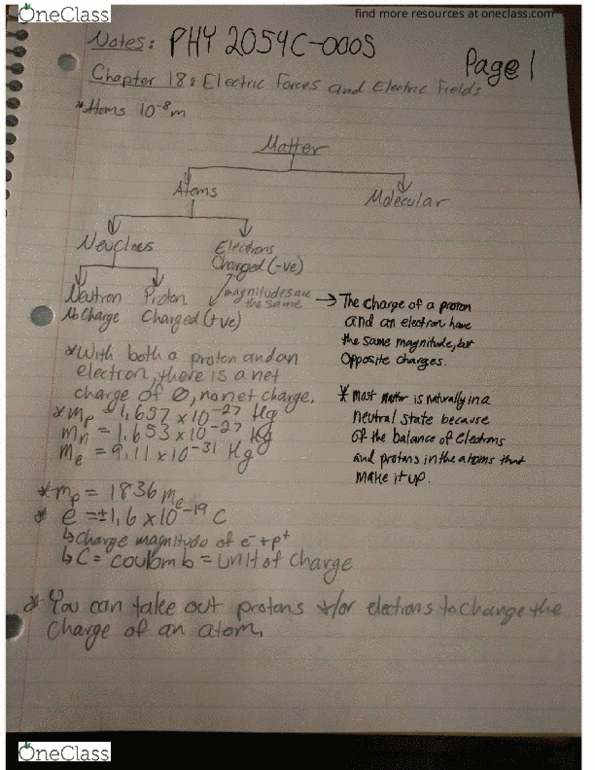 OneClass
find more resources at oneclass.com
Notes: PHY 2054C-0005
Page 1
Chapter 18: Electric Forces and Electric Fields
*Atoms 10⁻⁸m
Matter
Atoms
Molecular
Neucleus
Electrons
Charged (-ve)
Neutron
No Charge
Proton
Charged (+ve)
magnitudes are
the same
→ The charge of a proton
and an electron have
the same magnitude, but
opposite charges.
*With both a proton and an
electron, there is a net
charge of Ø, no net charge.
* mp = 1.657 x 10⁻²⁷ Kg
mn = 1.653 x 10⁻²⁷ Kg
me = 9.11 x 10⁻³¹ Kg
* Most matter is naturally in a
neutral state because
of the balance of electrons
and protons in the atoms that
make it up.
*mp = 1836 me
* e = ±1.6 x 10⁻¹⁹ C
↳ charge magnitude of e⁻ + p⁺
↳ C = coulomb = unit of charge
* You can take out protons +/or electrons to change the
charge of an atom.
OneClass